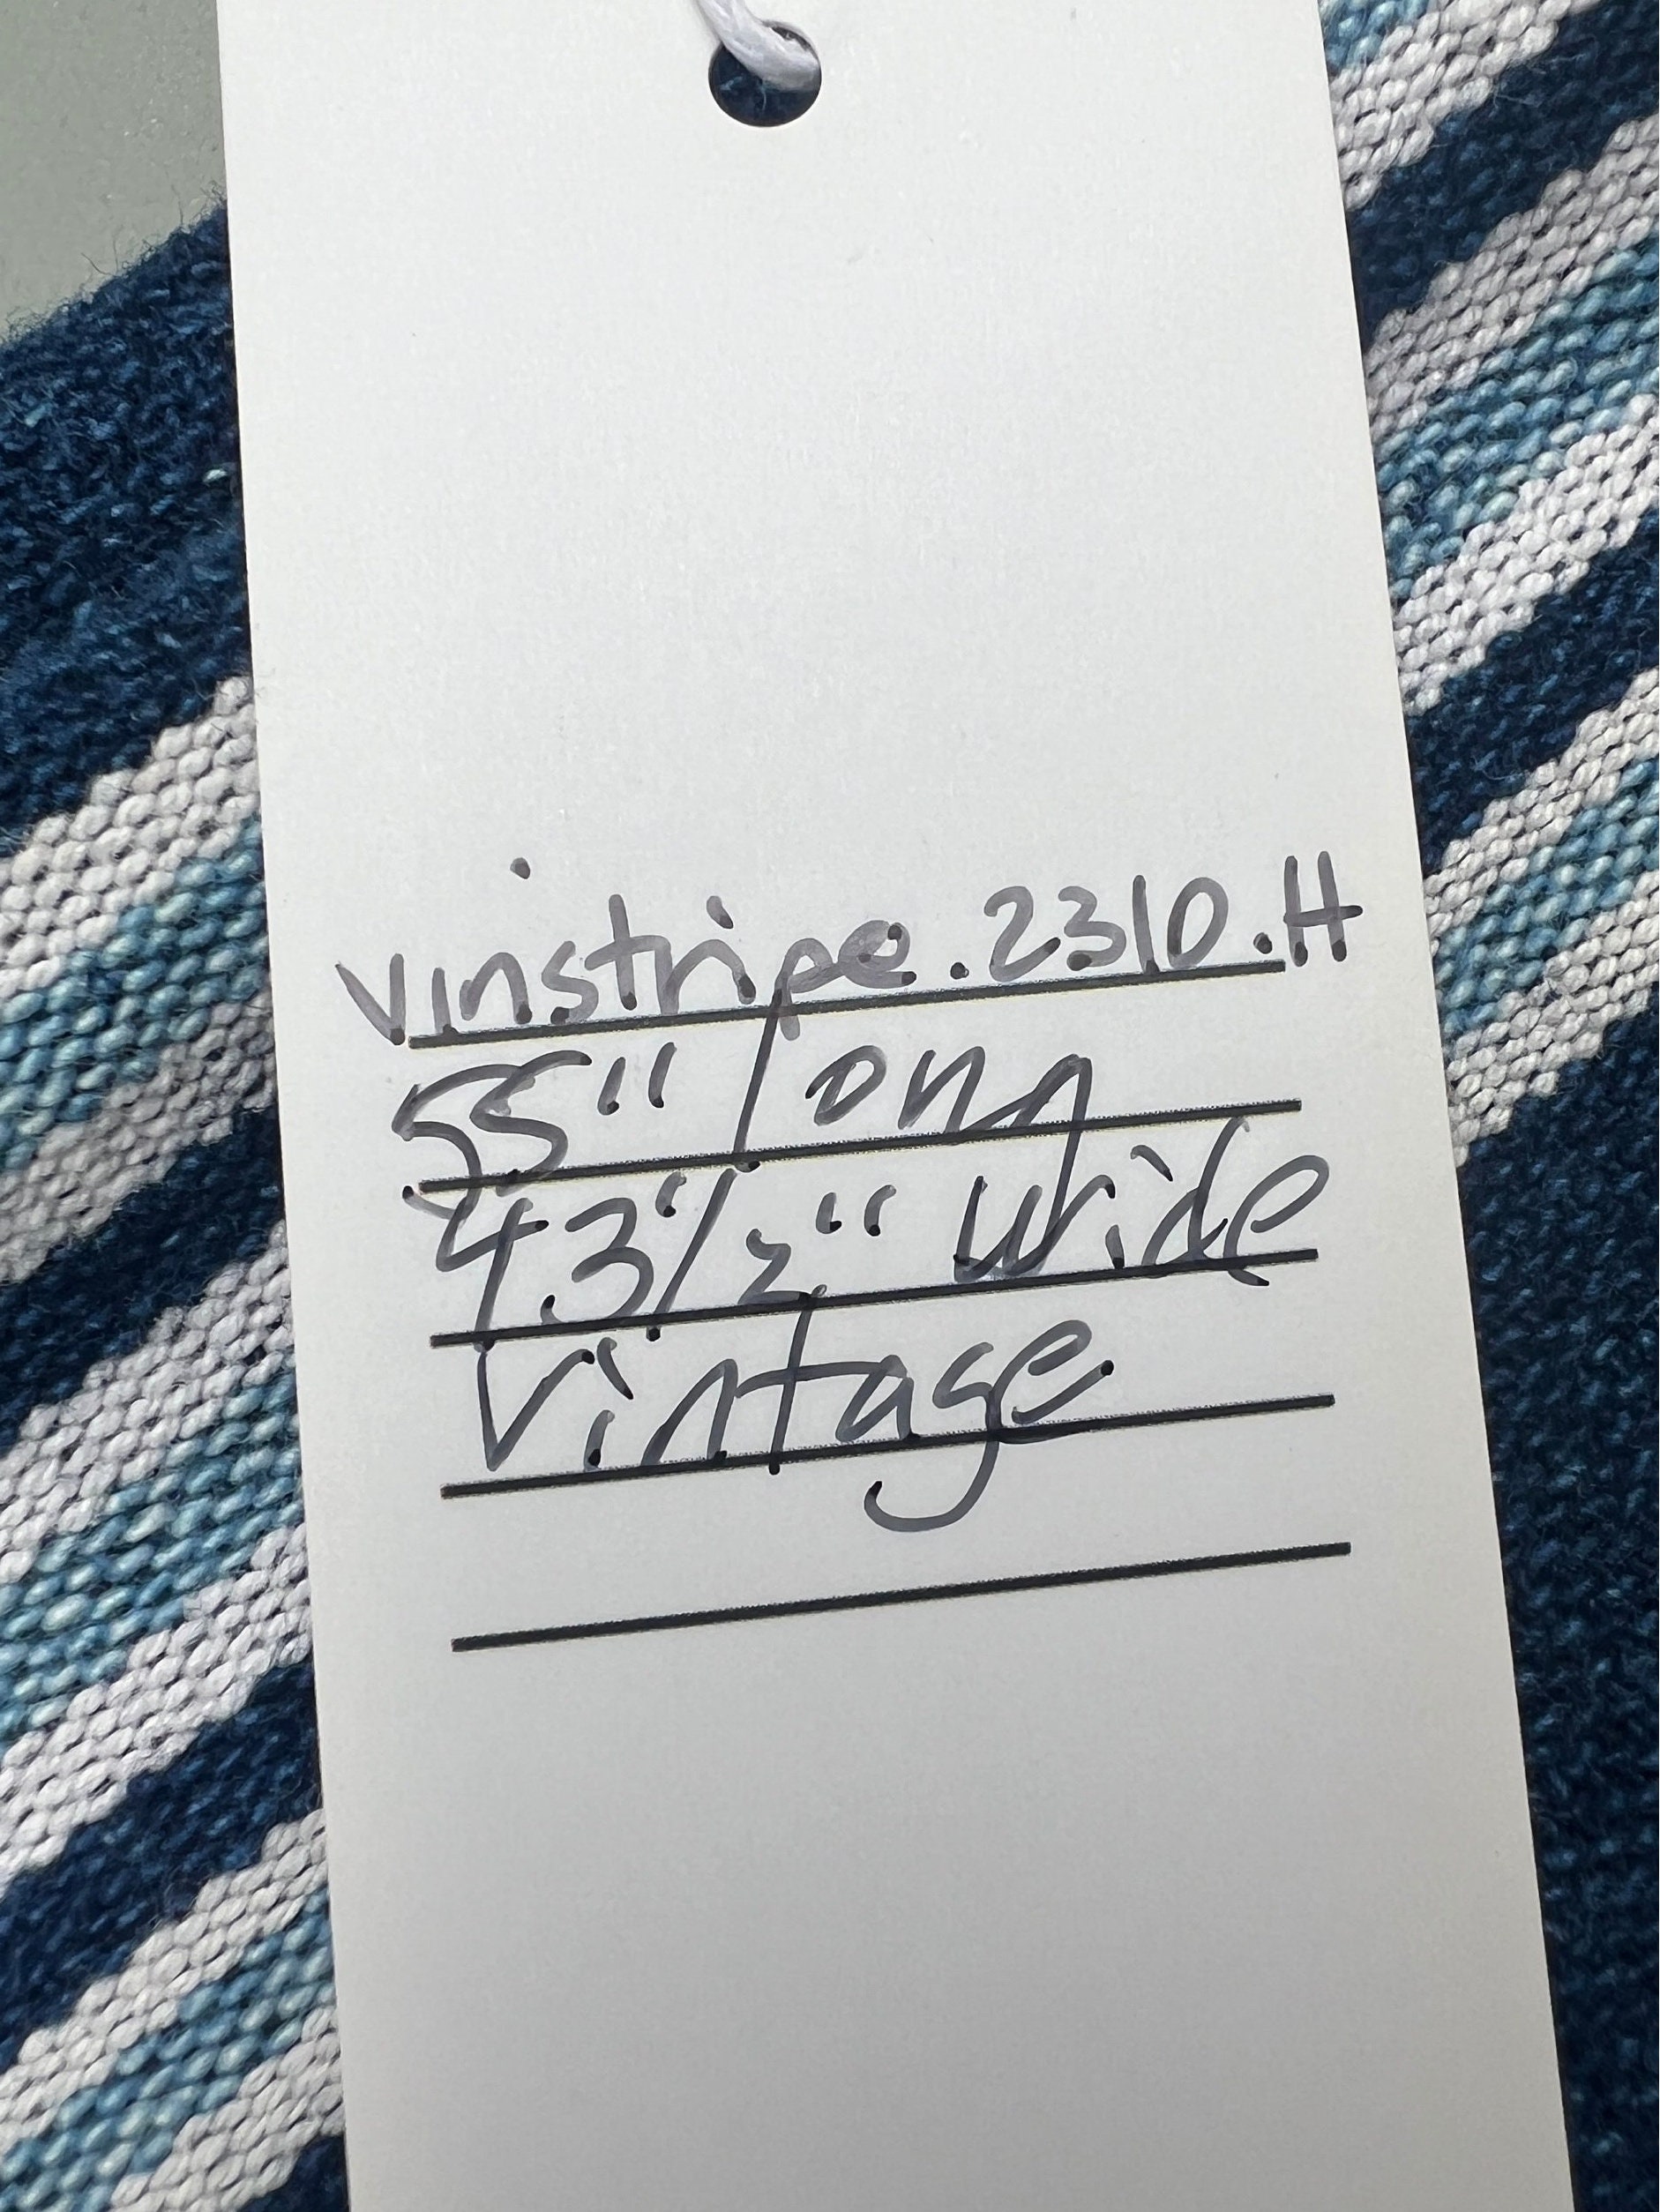 vinstripe.2310.H
55" long
43 1/2" wide
Vintage